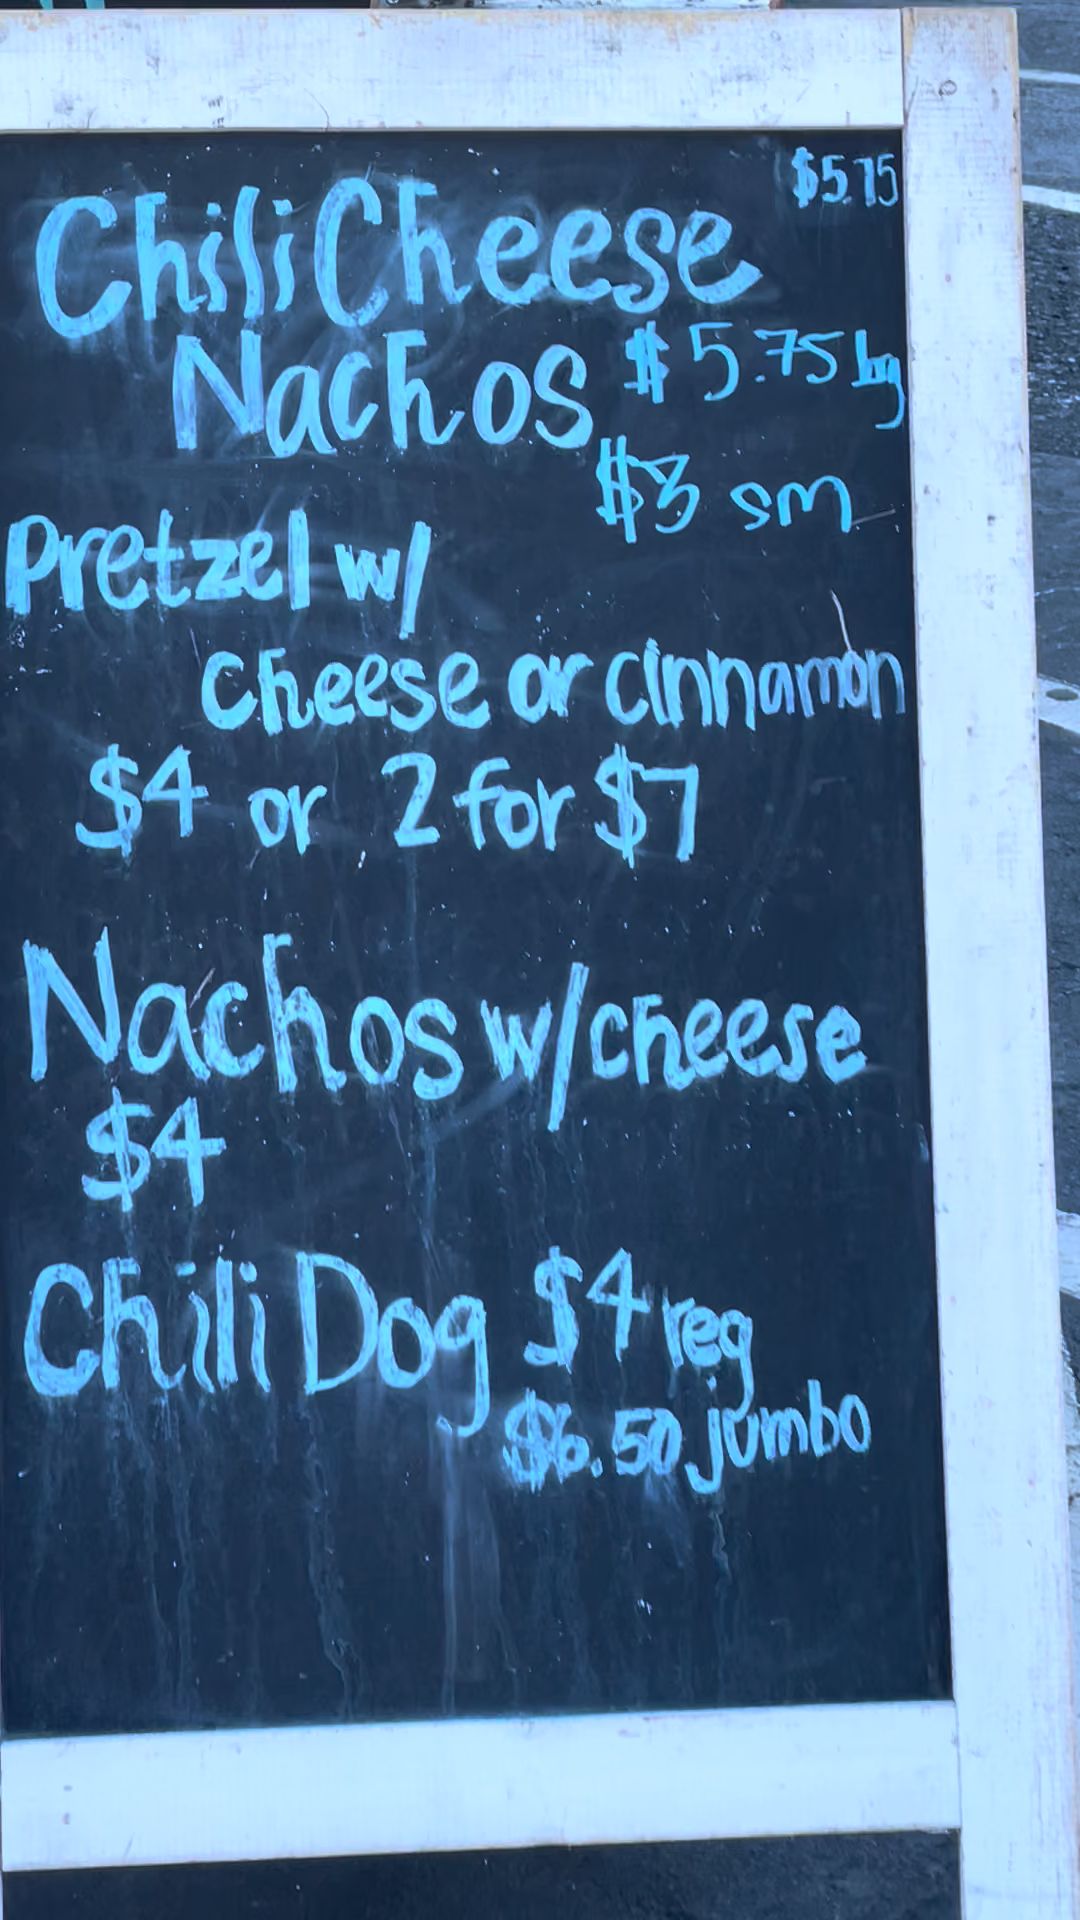 $5.75
Chili Cheese
Nachos $5.75 bg
$3 sm
Pretzel w/
cheese or cinnamon
$4 or 2 for $7
Nachos w/cheese
$4
Chili Dog $4 reg
$6.50 jumbo